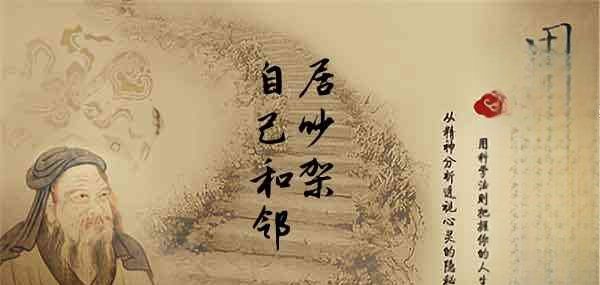 自己和邻
居吵架
用科学法则把握你的人生
从精神分析透视心灵的隐秘